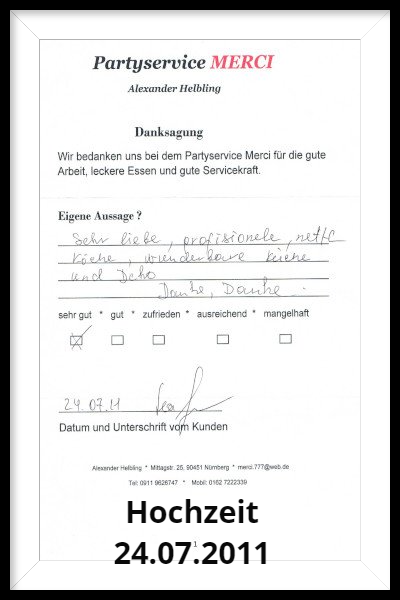 Partyservice MERCI
Alexander Helbling
Danksagung
Wir bedanken uns bei dem Partyservice Merci für die gute
Arbeit, leckere Essen und gute Servicekraft.
Eigene Aussage ?
Sehr liebe, profisionele, nette
Köche, wunderbare Küche
und Deko
Danke, Danke.
sehr gut * gut * zufrieden * ausreichend * mangelhaft
24.07.11
Datum und Unterschrift vom Kunden
Alexander Helbling * Mittagstr. 25, 90451 Nürnberg * merci.777@web.de
Tel: 0911 9626747 * Mobil: 0162 7222339
1
Hochzeit
24.07.2011